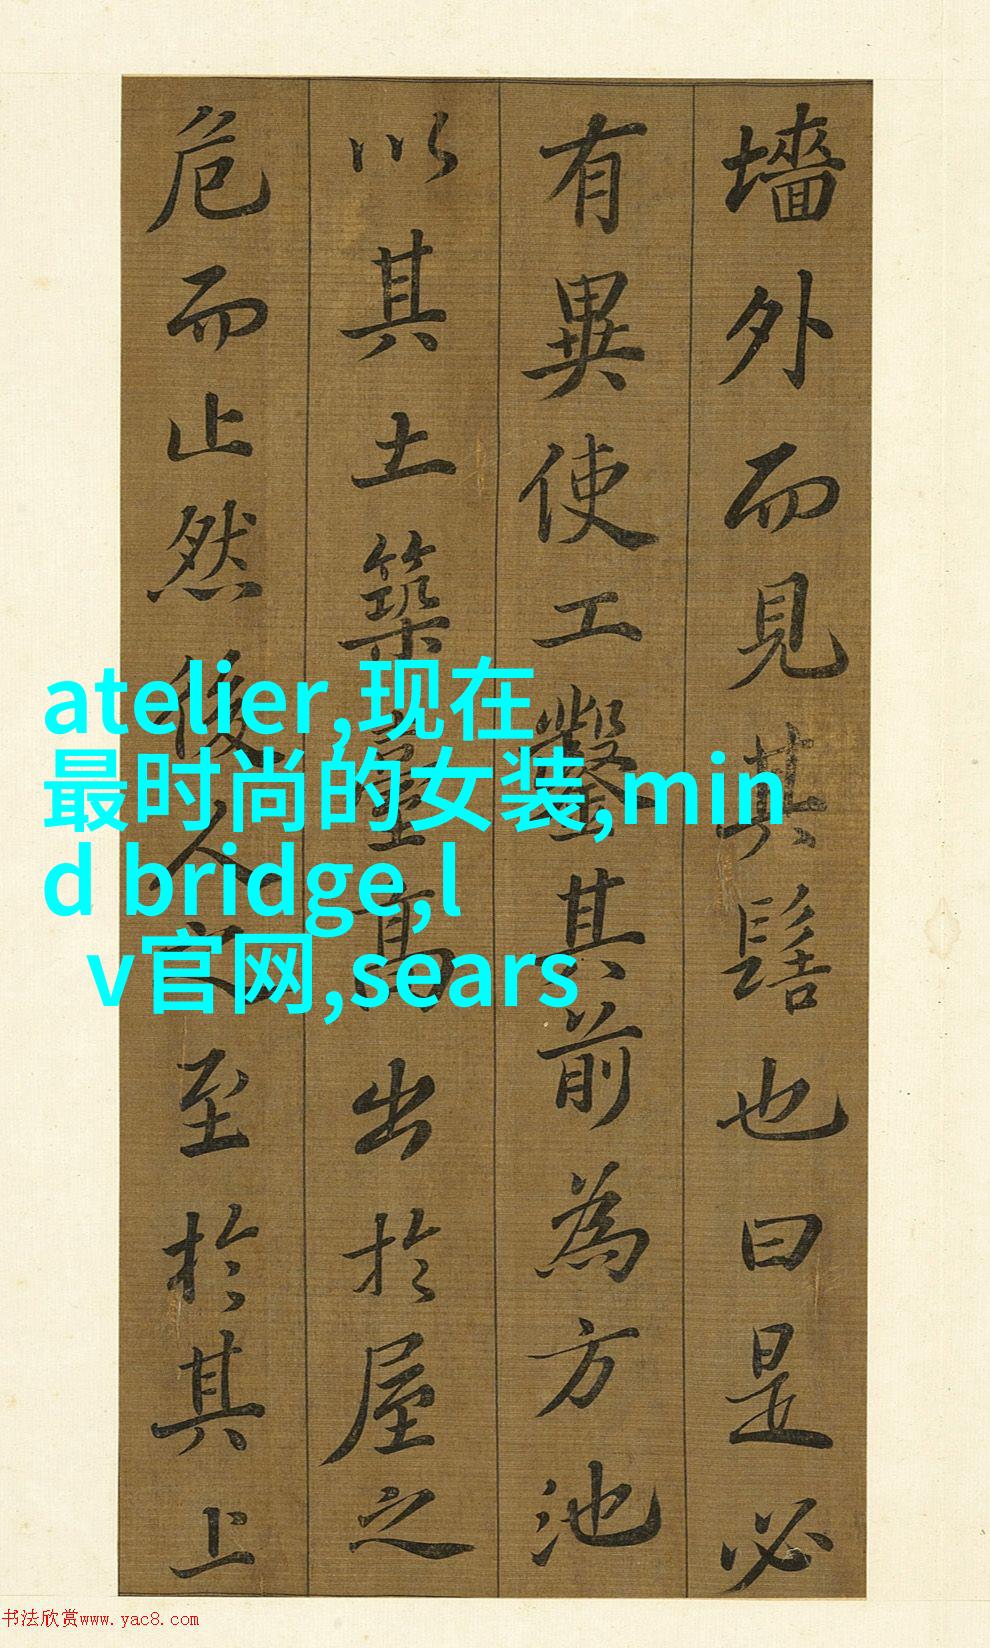 墻外而見其髻也曰是必
有異使工鑿其前為方池
以其土築臺高出於屋之
危而止然後人之至於其上
atelier,现在
最时尚的女装,min
d bridge,l
v官网,sears
书法欣赏www.yac8.com